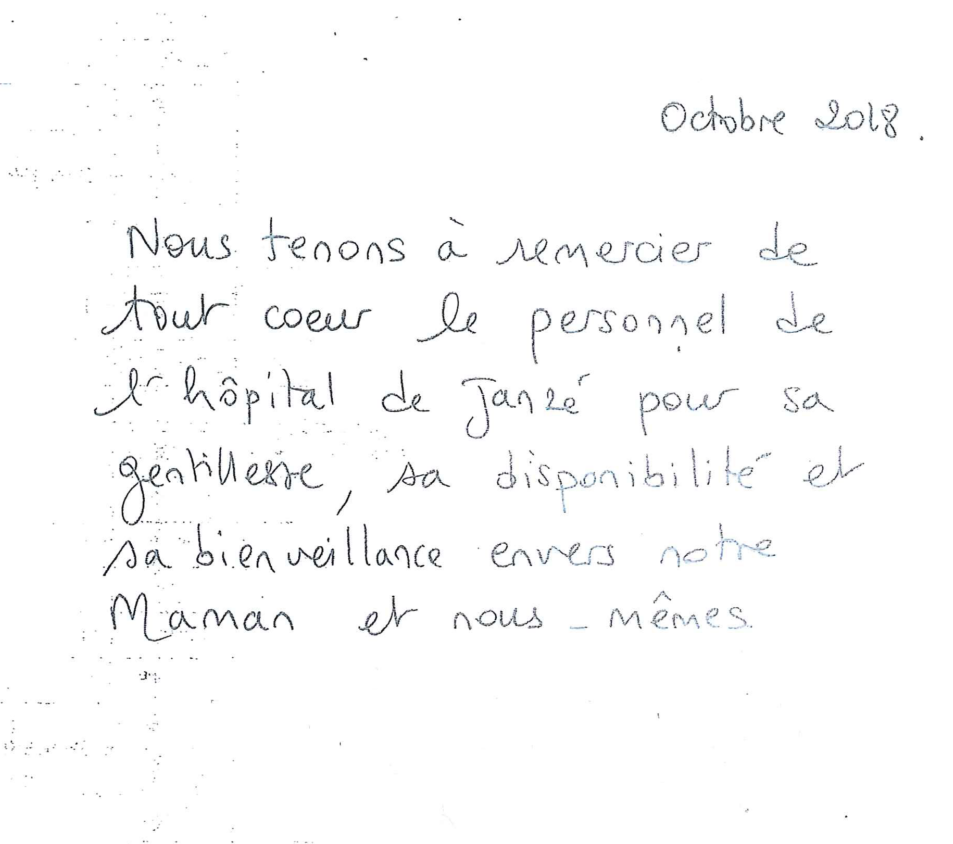 Octobre 2018.
Nous tenons à remercier de
tout coeur le personnel de
l'hôpital de Janzé pour sa
gentillesse, sa disponibilité et
sa bienveillance envers notre
Maman et nous-mêmes.